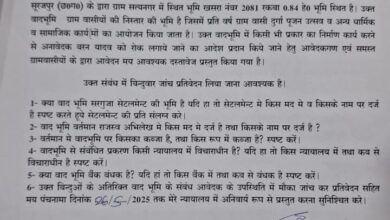 सूरजपुर (छ०ग०) के द्वारा ग्राम सत्यनगर में स्थित भूमि खसरा नंबर 2081 रकबा 0.84 हे0 भूमि है। उक्त
वादभूमि ग्राम वासीयों की निस्तार की भूमि है जिसमें प्रति वर्ष ग्राम वासी दुर्गा पूजन उत्सव व अन्य धार्मिक
व सामाजिक कार्यों का आयोजन किया जाता है। उक्त वादभूमि में किसी भी प्रकार का निर्माण कार्य करने
से अनावेदक वस्न यादव को रोक लगाये जाने का आदेश प्रदान किये जाने हेतु आवेदकगण एवं समस्त
ग्रामवासीयों के द्वारा आवेदन मय आवश्यक दस्तावेज प्रस्तुत किया गया है।
उक्त संबंध में विन्दुवार जांच प्रतिवेदन लिया जाना आवश्यक है।
1- क्या वाद भूमि सरगुजा सेटलमेन्ट की भूमि है यदि हा तो सेटलमेन्ट मे किस मद मे व किसके नाम पर दर्ज
है स्पष्ट करते हुये सेटलमेन्ट की प्रति संलग्न करे।
2- वाद भूमि वर्तमान राजस्व अभिलेख मे किस मद मे दर्ज है तथा किसके नाम पर दर्ज है ?
3- वर्तमान मे वादभूमि पर किसका कब्जा है, तथा किस रूप में कब्जा है? स्पष्ट करें।
4- वादभूमि से संबंधित प्रकरण किसी न्यायालय में विचाराधीन है? यदि हा तो किस न्यायालय में तथा कब से
विचाराधीन है स्पष्ट करें।
5- क्या वाद भूमि बैंक बंधक है? यदि हां तो किस बैंक में तथा कब से बंधक है स्पष्ट करें।
6- उक्त विन्दुओं के अतिरिक्त वाद भूमि के संबंध आवेदक के उपस्थिति में मौका जांच कर प्रतिवेदन सहित
मय पंचनामा दिनांक 26/5/2025 तक मेरे न्यायालय में अनिवार्य रूप से प्रस्तुत करना सुनिश्चित करें।